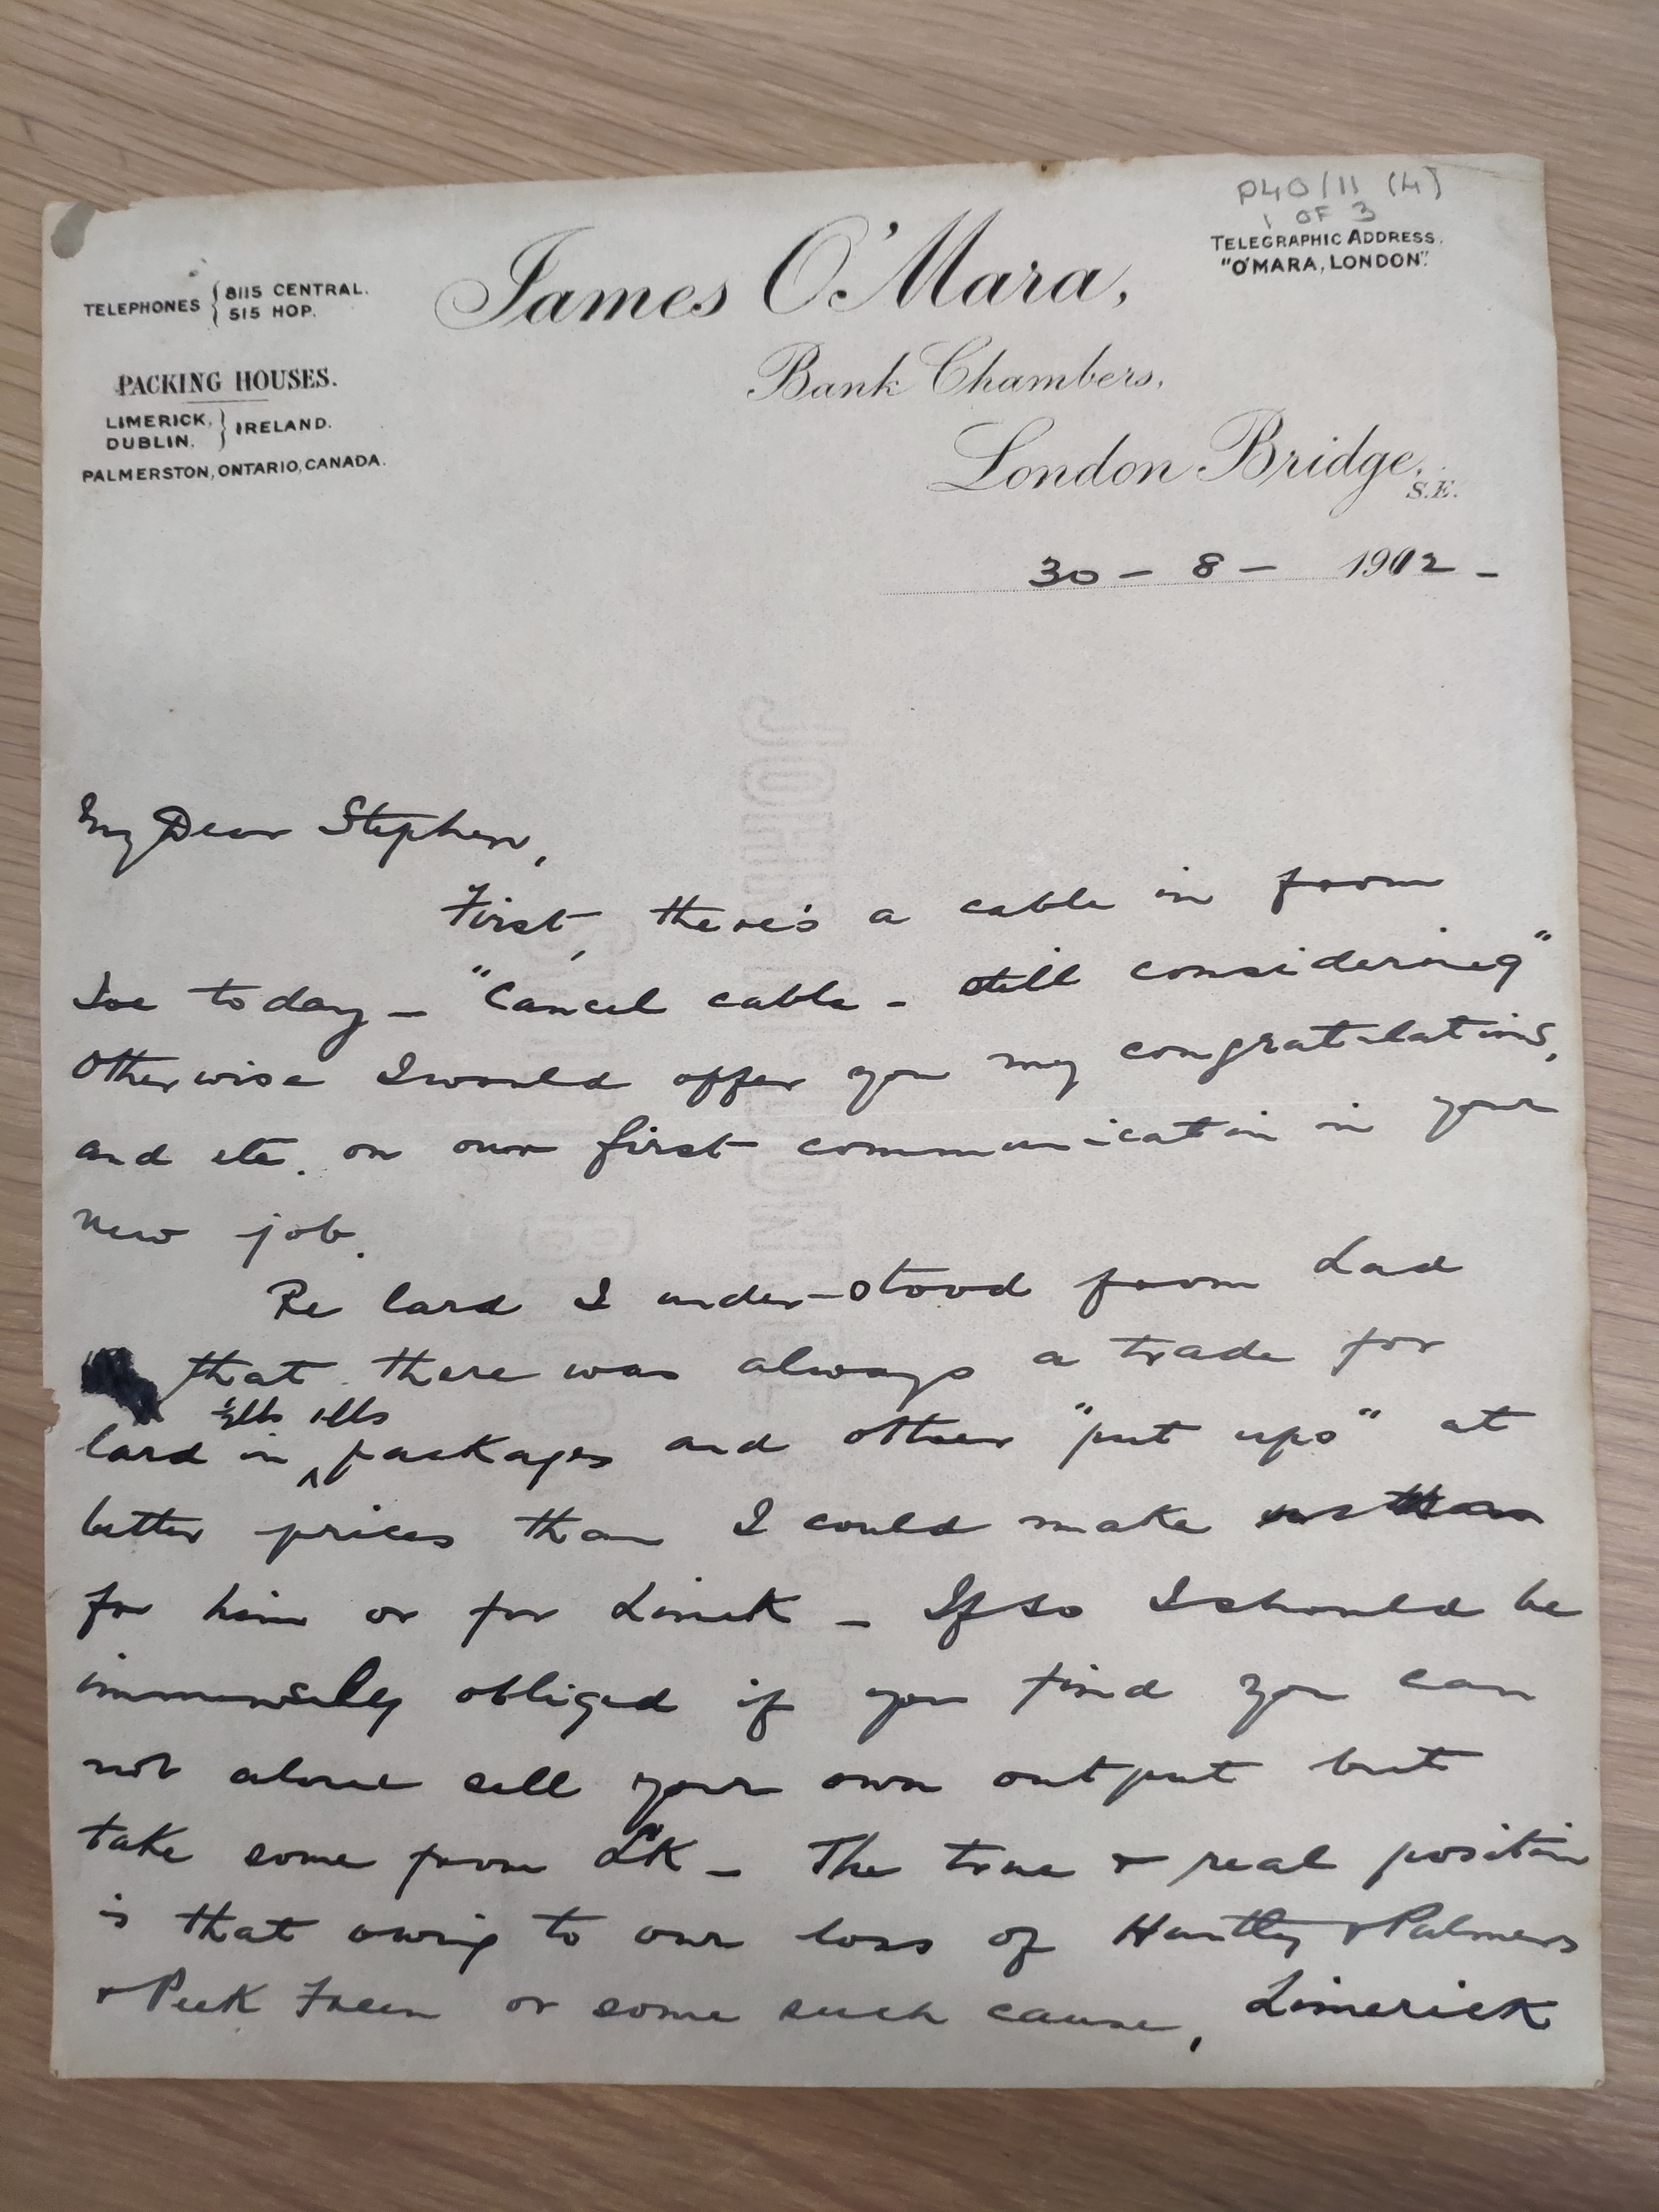 P40/11 (4)
1 OF 3
TELEGRAPHIC ADDRESS.
"O'MARA, LONDON".
TELEPHONES { 8115 CENTRAL.
515 HOP.
James O'Mara,
PACKING HOUSES.
LIMERICK, } IRELAND.
DUBLIN.
PALMERSTON, ONTARIO, CANADA.
Bank Chambers,
London Bridge,
S.E.
30 - 8 - 1912 -
My Dear Stephen,
First, there's a cable in from
Joe today - "Cancel cable - still considering"
Otherwise I would offer you my congratulations,
and etc. on our first communication in your
new job.
Re lard I under-stood from Dad
that there was always a trade for
½lb 1lbs
lard in ^ packages and other "put ups" at
better prices than I could make
for him or for Limk - If so I should be
immensely obliged if you find you can
not alone sell your own output but
take some from LK - The true & real position
is that owing to our loss of Huntley & Palmers
& Peek Frean or some such cause, Limerick